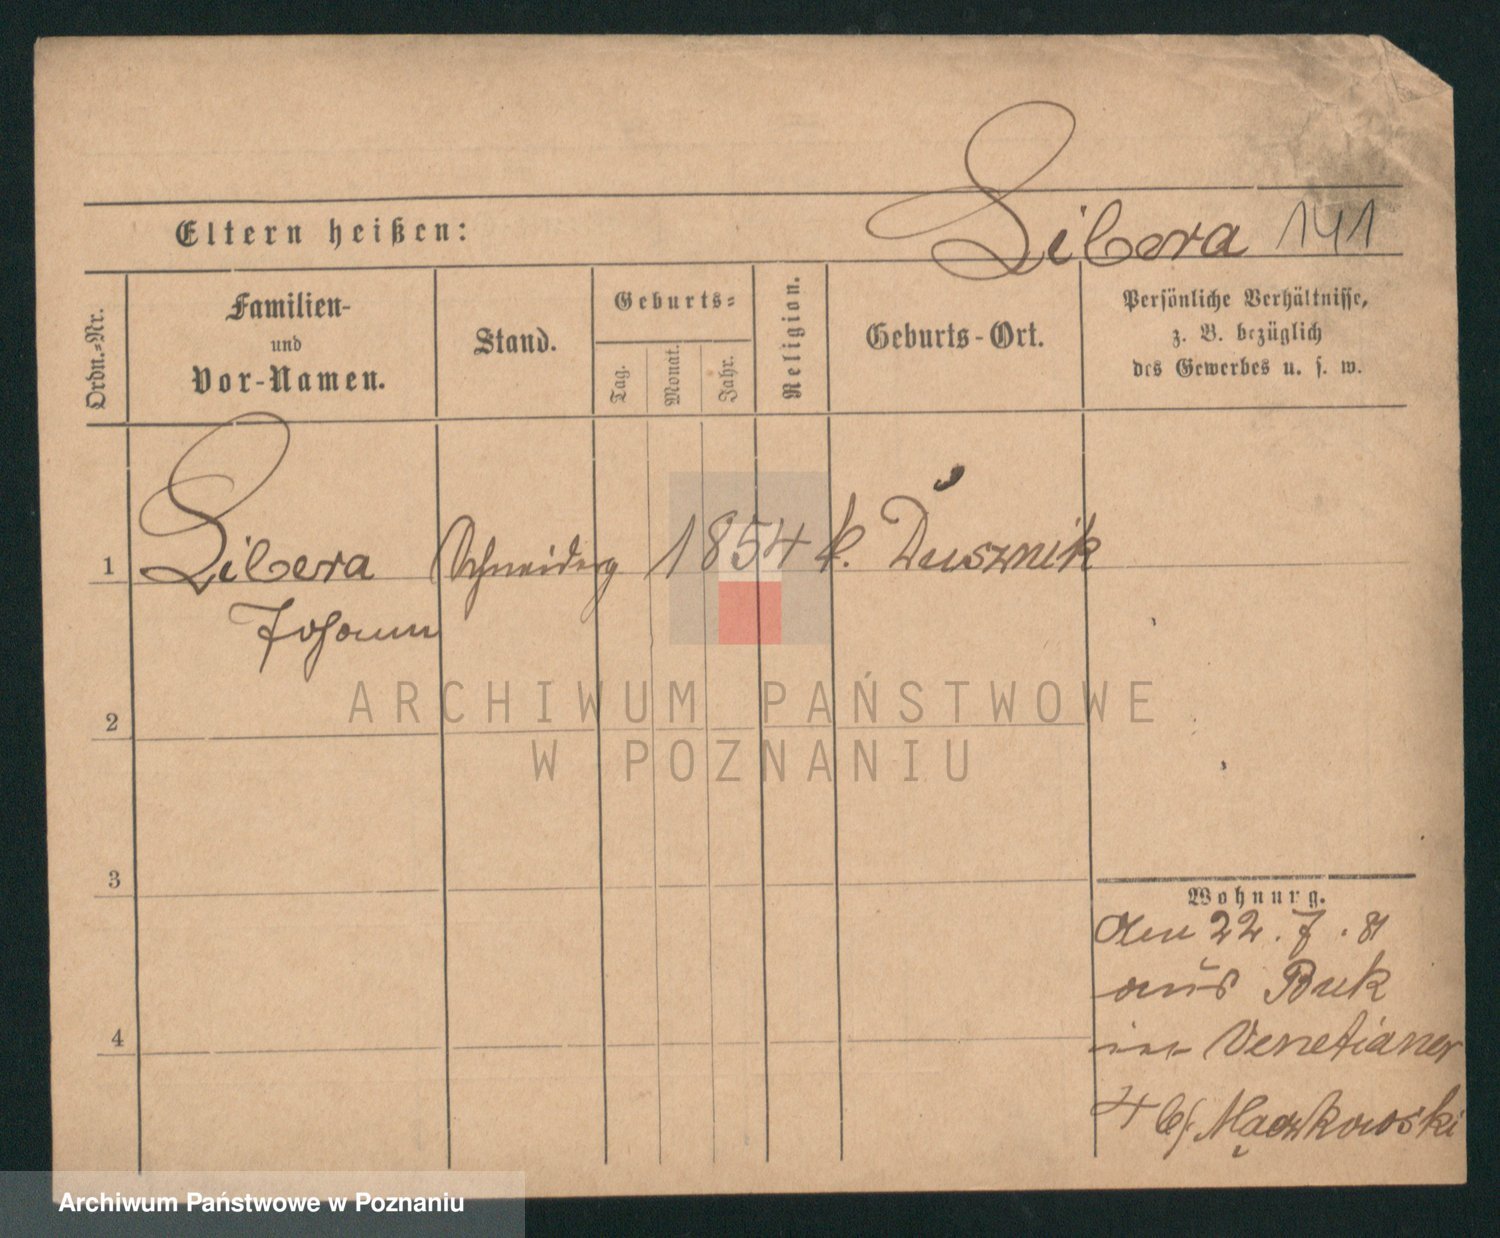 Libera 141
Eltern heißen:
Ordn.-Nr.
Familien-
und
Vor-Namen.
Stand.
Geburts-
Tag.
Monat.
Jahr.
Religion.
Geburts-Ort.
Persönliche Verhältnisse,
z. B. bezüglich
des Gewerbes u. s. w.
1 Libera Schneider 1854 k. Dusznik
Johann
2
3
4
Wohnung.
den 22. 7. 81
aus Buk
in Venetianer
4 b/ Mączkowski
ARCHIWUM PAŃSTWOWE
W POZNANIU
Archiwum Państwowe w Poznaniu